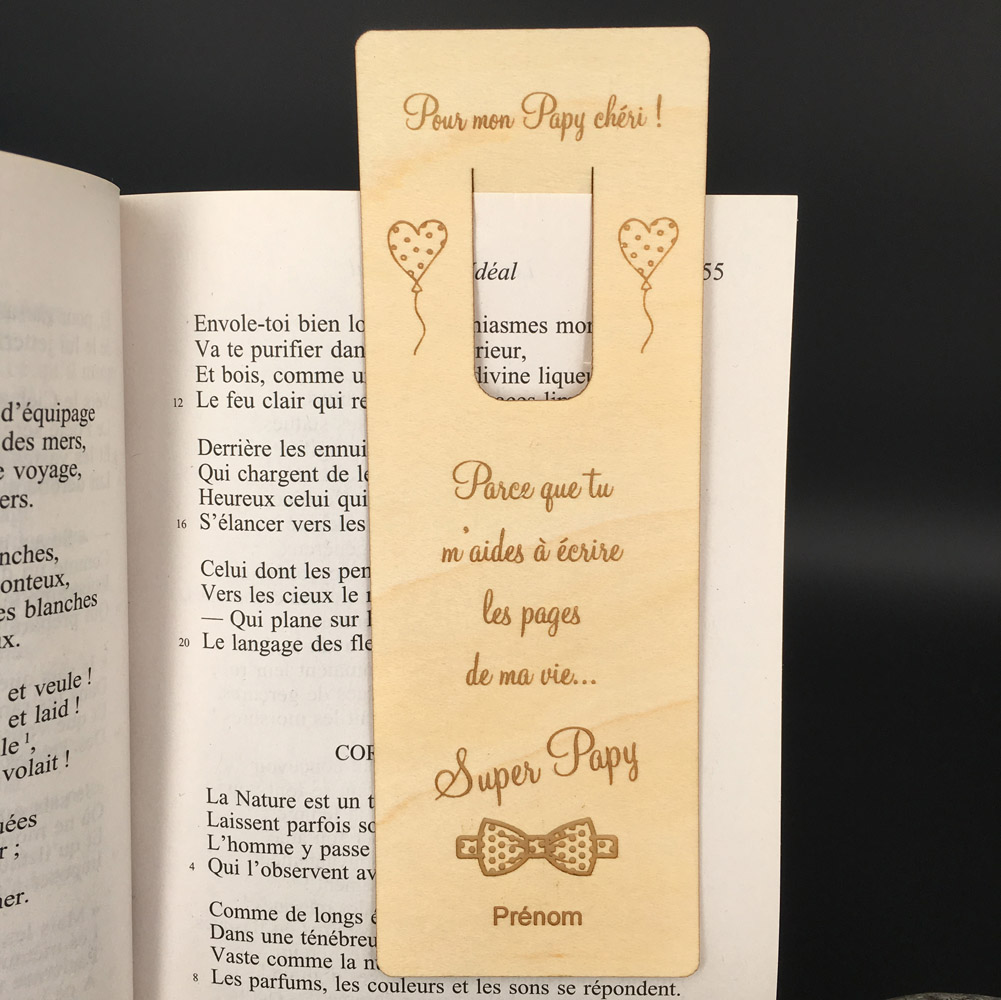 d'équipage
des mers,
voyage,
et veule !
et laid !
volait !
Idéal
55
Envole-toi bien
Va te purifier
Et bois, comme
divine
12 Le feu clair qui
Derrière les
Qui chargent de
Heureux celui qui
16 S'élancer vers les
Celui dont les
Vers les cieux le
— Qui plane sur
20 Le langage des
La Nature est un
Laissent parfois
L'homme y passe
4 Qui l'observent
Comme de longs
Dans une
Vaste comme la
8 Les parfums, les couleurs et les sons se répondent.
Pour mon Papy chéri !
Parce que tu
m'aides à écrire
les pages
de ma vie...
Super Papy
Prénom